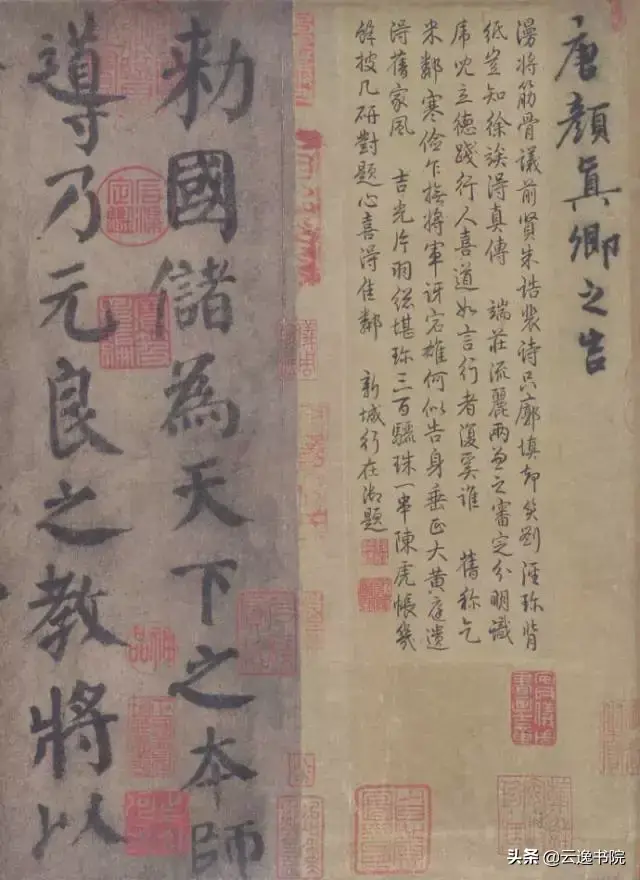 唐顏真卿之告
漫將筋骨議前賢朱誥裴诗只廓填却笑劉涇珍背
紙豈知徐談得真傳 端莊流麗兩兼之審定分明識
席立德踐行人喜道如言行者復奚誰 舊称乞
米鄰寒俭乍撫將軍訝宕雄何似告身垂正大黄庭遺
得舊家風 吉光片羽總堪珍三百驪珠一串陳虎帳幾
餘披几研對題心喜得佳鄰 新城行在御題
敕國儲為天下之本師
導乃元良之教將以
神品
头条 @云逸书院